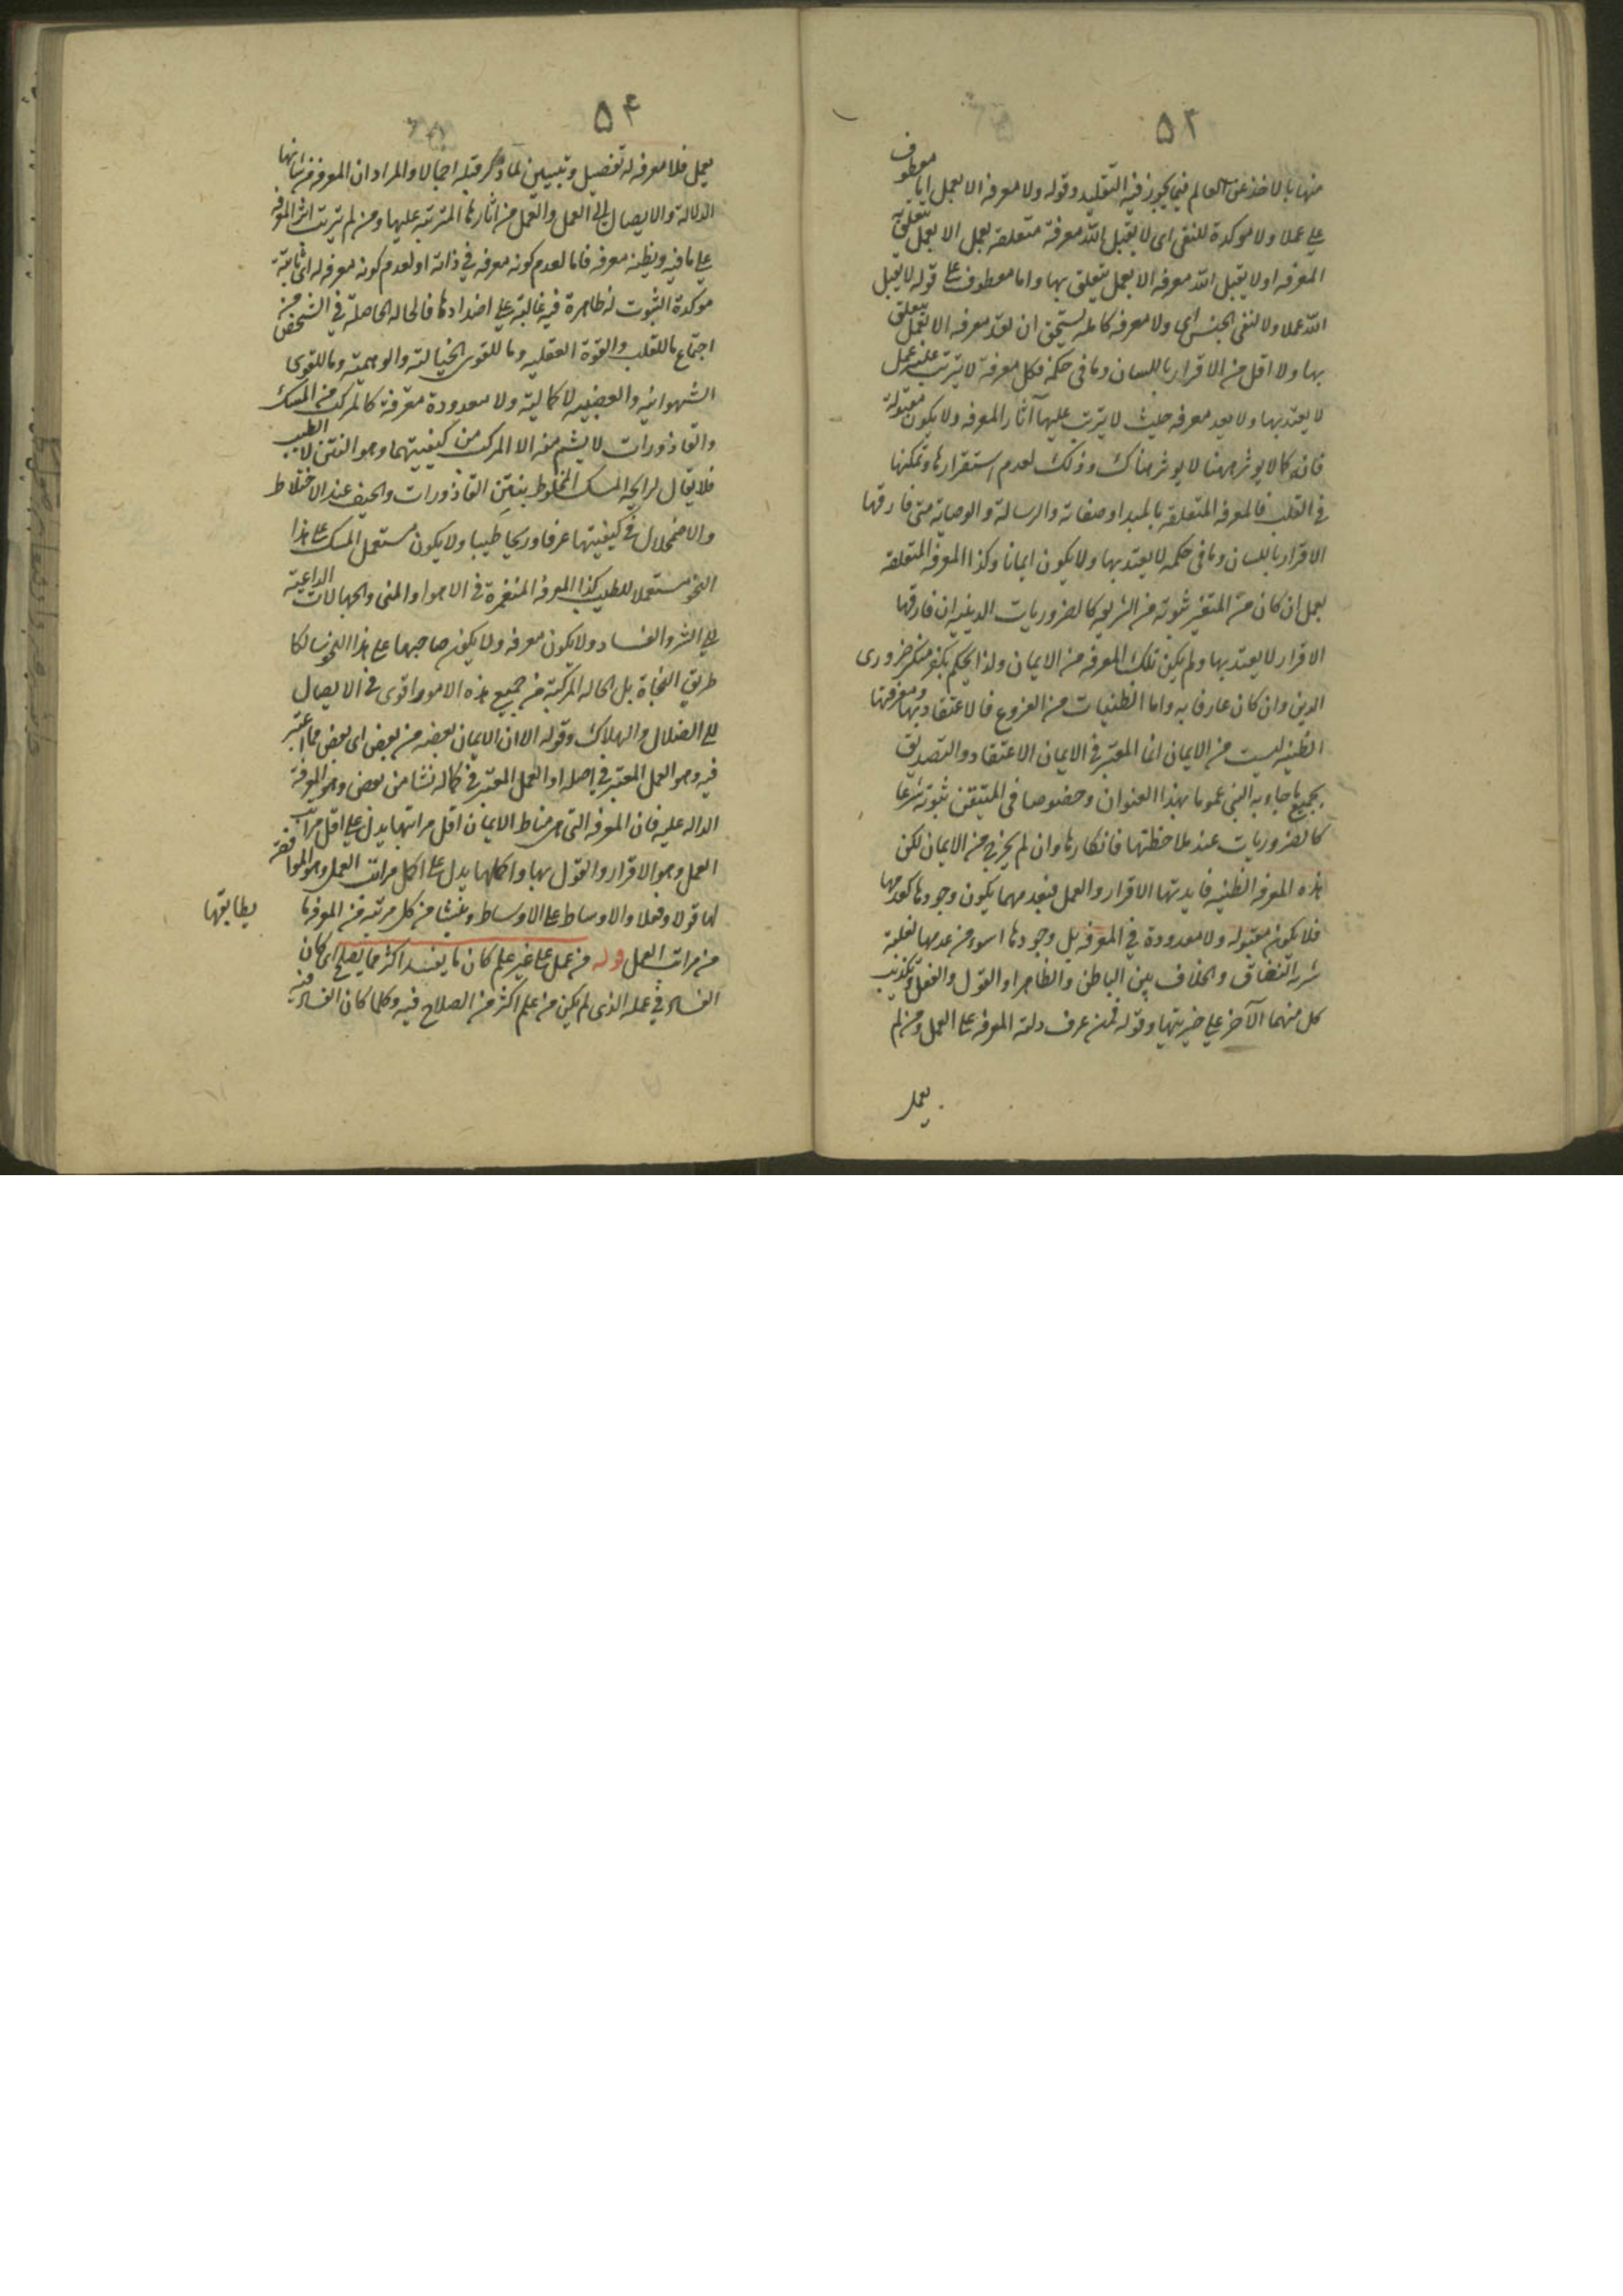 ۵۲
منها بالاخذ عن العالم فيما يجوز فيه التقليد وقوله ولا معرفه الا بعمل اما معطوف
على عملا ولا موكدة للنفى اى لا يقبل الله معرفة متعلقه بعمل الا بعمل يتعلق به
المعرفه او لا يقبل الله معرفه الا بعمل يتعلق بها واما معطوف على قوله لا يقبل
الله عملا ولا لنفى الجنس اى ولا معرفه كامله يستحق ان تعد معرفه الا بعمل يتعلق
بها ولا اقل من الاقرار باللسان وما فى حكمه فكل معرفة لا يترتب عليه عمل
لا يعتد بها ولا يعد معرفه حيث لا يترتب عليها آثار المعرفه ولا يكون مقبولة
فانه كما لا يوثر ههنا لا يوثر هناك وذلك لعدم استقرارها وتمكنها
فى القلب فالمعرفه المتعلقه بالمبدا وصفاته والرسالة والوصاية متى فارقها
الاقرار باللسان وما فى حكمه لا يعتد بها ولا يكون ايمانا وكذا المعرفه المتعلقه
بعمل ان كان من المتيقن ثبوته من الشريعه كالضروريات الدينيه ان فارقها
الاقرار لا يعتد بها ولم يكن تلك المعرفه من الايمان ولذا يحكم بكفر منكر ضرورى
الدين وان كان عارفا به واما الظنيات من الفروع فالاعتقاد بها ومعرفتها
الظنيه ليست من الايمان انما المعتبر فى الايمان الاعتقاد والتصديق
بجميع ما جاء به النبى عموما بهذا العنوان وخصوصا فى المتيقن ثبوته شرعا
كالضروريات عند ملاحظتها فانكارها وان لم يخرج من الايمان لكن
هذه المعرفه الظنيه فايدتها الاقرار والعمل فبعدمهما يكون وجودها كعدمها
فلا يكون مقبوله ولا معدودة فى المعرفه بل وجودها اسوء من عدمها لغلبة
شرر النفاق والخلاف بين الباطن والظاهر او القول والفعل وتكذيب
كل منهما الآخر على خيريتها وقوله فمن عرف دلته المعرفه على العمل ومن لم
يعمل
۵۴
يعمل فلا معرفه له تفصيل وتبيين لما ذكر قبله اجمالا والمراد ان المعرفه من شانها
الدلالة والايصال الى العمل والعمل من اثارها المترتبه عليها ومن لم يترتب اثر المعرفه
على ما فيه ويظنه معرفه فاما لعدم كونه معرفه فى ذاته او لعدم كونه معرفه له اى ثابتة
موكدة الثبوت له ظاهرة فيه غالبة على اضدادها فالحاله الحاصلة فى الشخص من
اجتماع ما للقلب والقوة العقليه وما للقوى الخيالية والوهمية وما للقوى
الشهوانيه والغضبيه لا كمالية ولا معدودة معرفة كالمركب من المسك
والقاذورات لا يشم منه الا المركب من كيفيتهما وهو النتن لا الطيب
فلا يقال لرايحه المسك المخلوط بنتن القاذورات والجيف عند الاختلاط
والاضمحلال فى كيفيتها عرفا وريحا طيبا ولا يكون مستعمل المسك على هذا
النحو مستعملا للطيب كذا المعرفه المنغمرة فى الاهوا والمنى والجهالات الداعية
الى الشر والفساد ولا يكون معرفه ولا يكون صاحبها على هذا النحو سالكا
طريق النجاة بل الحاله المركبة من جميع هذه الامور اقوى فى الايصال
الى الضلال والهلاك وقوله الا ان الايمان بعضه من بعض اى بعض مما اعتبر
فيه وهو العمل المعتبر فى اصله او العمل المعتبر فى كماله نشا من بعض وهو المعرفة
الداله عليه فان المعرفه التى هى مناط الايمان اقل مراتبها يدل على اقل مراتب
العمل وهو الاقرار والقول بها واكملها يدل على اكمل مراتب العمل وهو الموافقة
لها قولا وفعلا والاوساط على الاوساط وينشا من كل مرتبه من المعرفه ما يطابقها
من مراتب العمل قوله من عمل على غير علم كان ما يفسد اكثر مما يصلح اى كان
الفساد فى عمله الذى لم يكن من علم اكثر من الصلاح فيه وكلما كان الفساد فيه